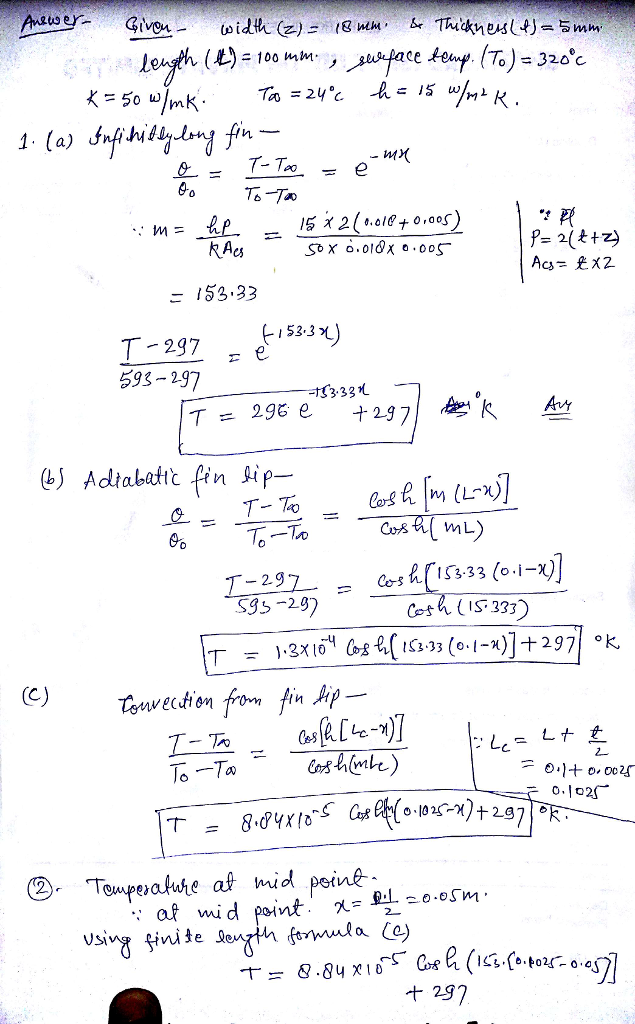 Answer- Given - width (z) = 18 mm. & Thickness (t) = 5mm
length (L) = 100 mm. , surface temp. (To) = 320°c
K = 50 w/mk. T∞ = 24°c h = 15 w/m² K.
1. (a) Infinitely long fin -
θ/θo = T-T∞/To-T∞ = e^-mx
∵ m = hP/KAcs = 15 x 2(0.018+0.005)/50 x 0.018 x 0.005
P = 2(t+z)
Acs = t x z
= 153.33
T - 297/593 - 297 = e^(-153.3x)
T = 296 e^-153.33x + 297 °k Ans
(b) Adiabatic fin tip-
θ/θo = T-T∞/To-T∞ = Cosh[m(L-x)]/Cosh(mL)
T-297/593-297 = Cosh[153.33(0.1-x)]/Cosh(15.333)
T = 1.3x10^-4 Cosh[153.33(0.1-x)] + 297 °K
(c) Convection from fin tip -
T-T∞/To-T∞ = Cosh[Lc-x)]/Cosh(mLc)
∵ Lc = L + t/2
= 0.1 + 0.0025
= 0.1025
T = 8.84x10^-5 Cosh(0.1025-x) + 297 °k.
2. Temperature at mid point-
∵ at mid point. x = 0.1/2 = 0.05m.
Using finite length formula (c)
T = 8.84x10^-5 Cosh (153.(0.1025-0.05)]
+ 297